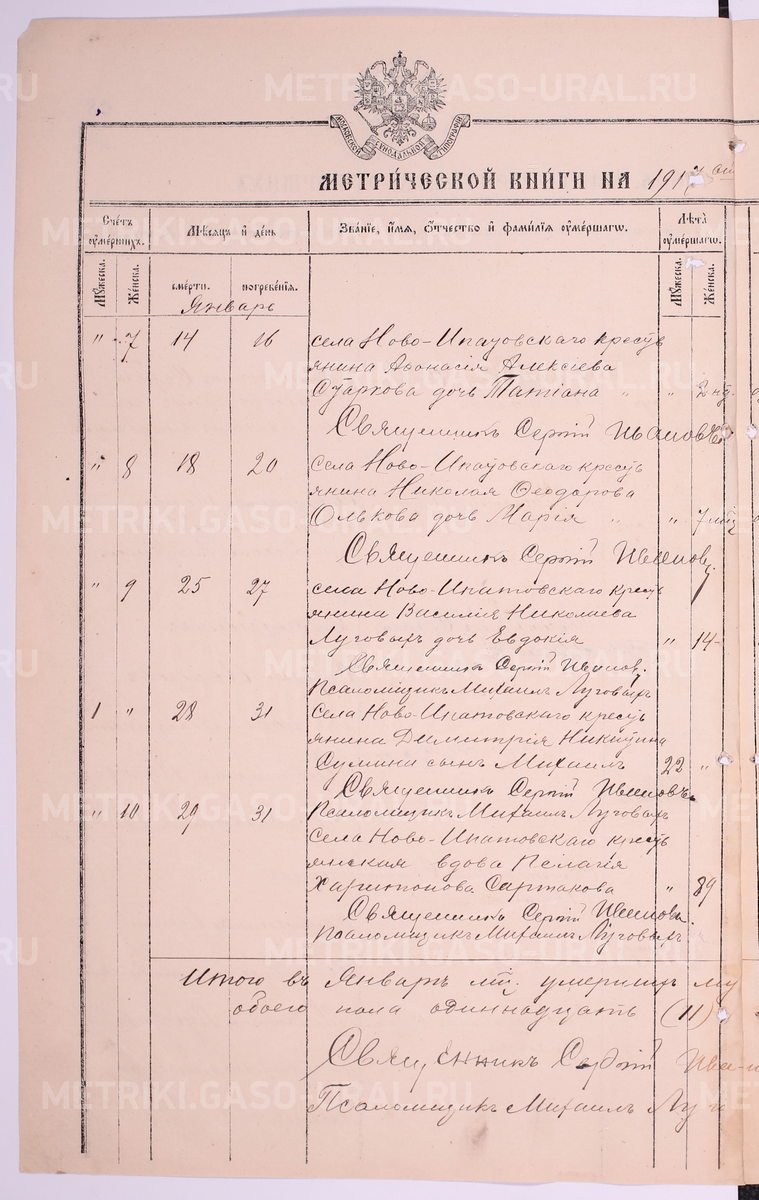 МЕТРИ́ЧЕСКОЙ КНИ́ГИ НА 191
Сче́тъ ᲂу҆ме́ршихъ.
Мѣ́сяцъ и҆ де́нь
Зва́нїе, и҆́мя, ѻ҆́тчество и҆ фами́лїя ᲂу҆ме́ршагѡ.
Лѣ́та ᲂу҆ме́ршагѡ.
Мꙋ́жеска.
Же́нска.
сме́рти.
погребе́нїя.
Мꙋ́жеска.
Же́нска.
Январь
" 7 14 16 села Ново-Ипатовскаго кресть
янина Аѳонасія Алексіева
Старкова дочь Татіана " " 2 нд.
Священникъ Сергій Ивановъ
" 8 18 20 села Ново-Ипатовскаго кресть
янина Николая Ѳеодорова
Олькова дочь Марія " " 7 мц
Священникъ Сергій Ивановъ
" 9 25 27 села Ново-Ипатовскаго кресть
янина Василія Николаева
Луговыхъ дочь Евдокія " 14
Священникъ Сергій Ивановъ.
Псаломщикъ Михаилъ Луговыхъ
1 " 28 31 Села Ново-Ипатовскаго кресть
янина Димитрія Никитина
Сумина сынъ Михаилъ 22 "
Священникъ Сергій Ивановъ.
Псаломщикъ Михаилъ Луговыхъ
" 10 29 31
Села Ново-Ипатовскаго кресть
янская вдова Пелагія
Харитонова Сартакова " 89
Священникъ Сергій Ивановъ
Псаломщикъ Михаилъ Луговыхъ
Итого въ Январѣ мц. умершихъ му
обоего пола одиннадцать (11)
Священникъ Сергій Ива
Псаломщикъ Михаилъ Луго
METRIKI.GASO-URAL.RU